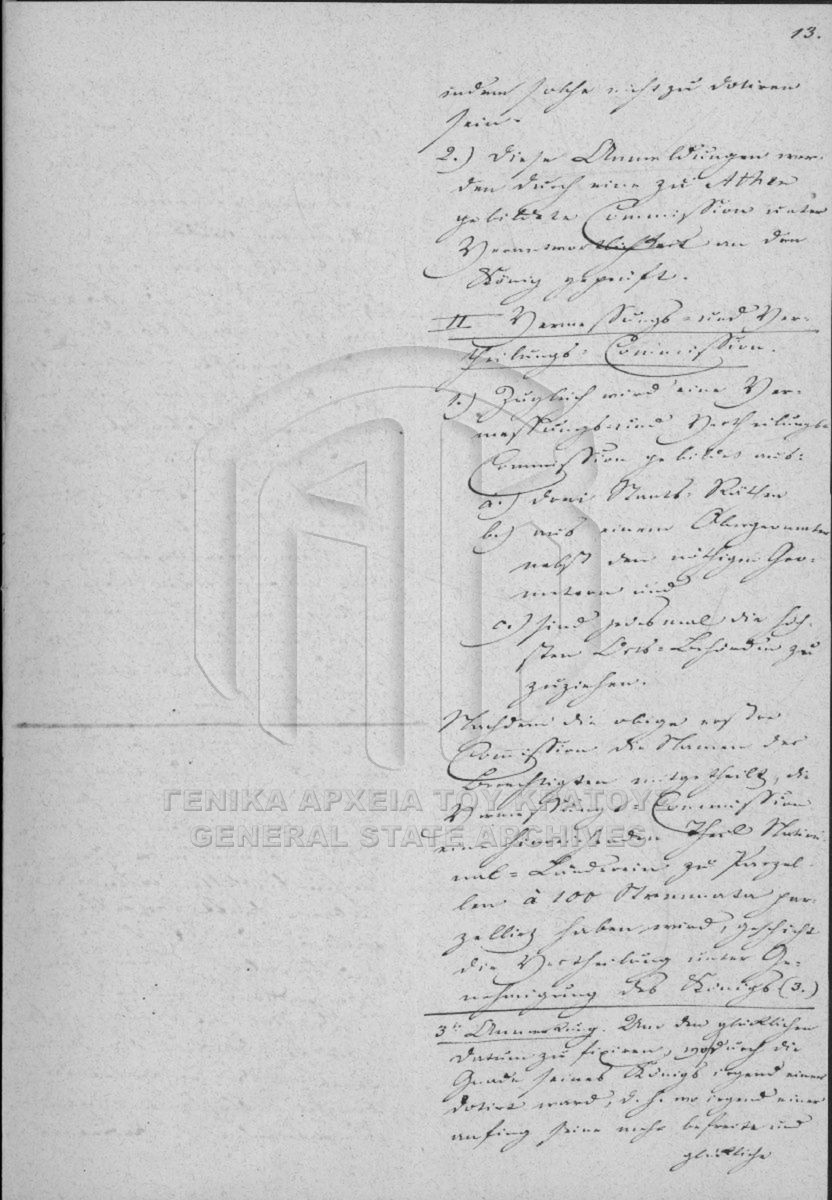 13.
indem solche nicht zu dotiren
sein.
2.) Diese Anmeldungen wer-
den durch eine zu Athen
gebildete Commission unter
Verantwortlichkeit an den
König geprüft.
II. Vermessungs- und Ver-
theilungs-Commission.
1.) Zugleich wird eine Ver-
messungs- und Vertheilungs-
Commission gebildet aus:
a.) drei Staats-Räthen
b.) aus einem Obergeometer
nebst den nöthigen Geo-
metern und
c.) sind jedesmal die höch-
sten Orts-Behörden zu
zuziehen.
Nachdem die obige erstere
Commission die Namen der
Berechtigten mitgetheilt, die
Vermessungs-Commission
einen Theil Natio-
nal-Länderein zu Parzel-
len à 100 Stremmata par-
zellirt haben wird, geschieht
die Vertheilung unter Ge-
nehmigung des Königs (3.)
3te Anmerkung. Um den glücklichen
Datum zu fixiren, wodurch die
Gnade seines Königs irgend einer
dotirt ward, d. h. wo irgend einer
anfing seine mehr befreite und
glückliche
ΓΕΝΙΚΑ ΑΡΧΕΙΑ ΤΟΥ ΚΡΑΤΟΥΣ
GENERAL STATE ARCHIVES